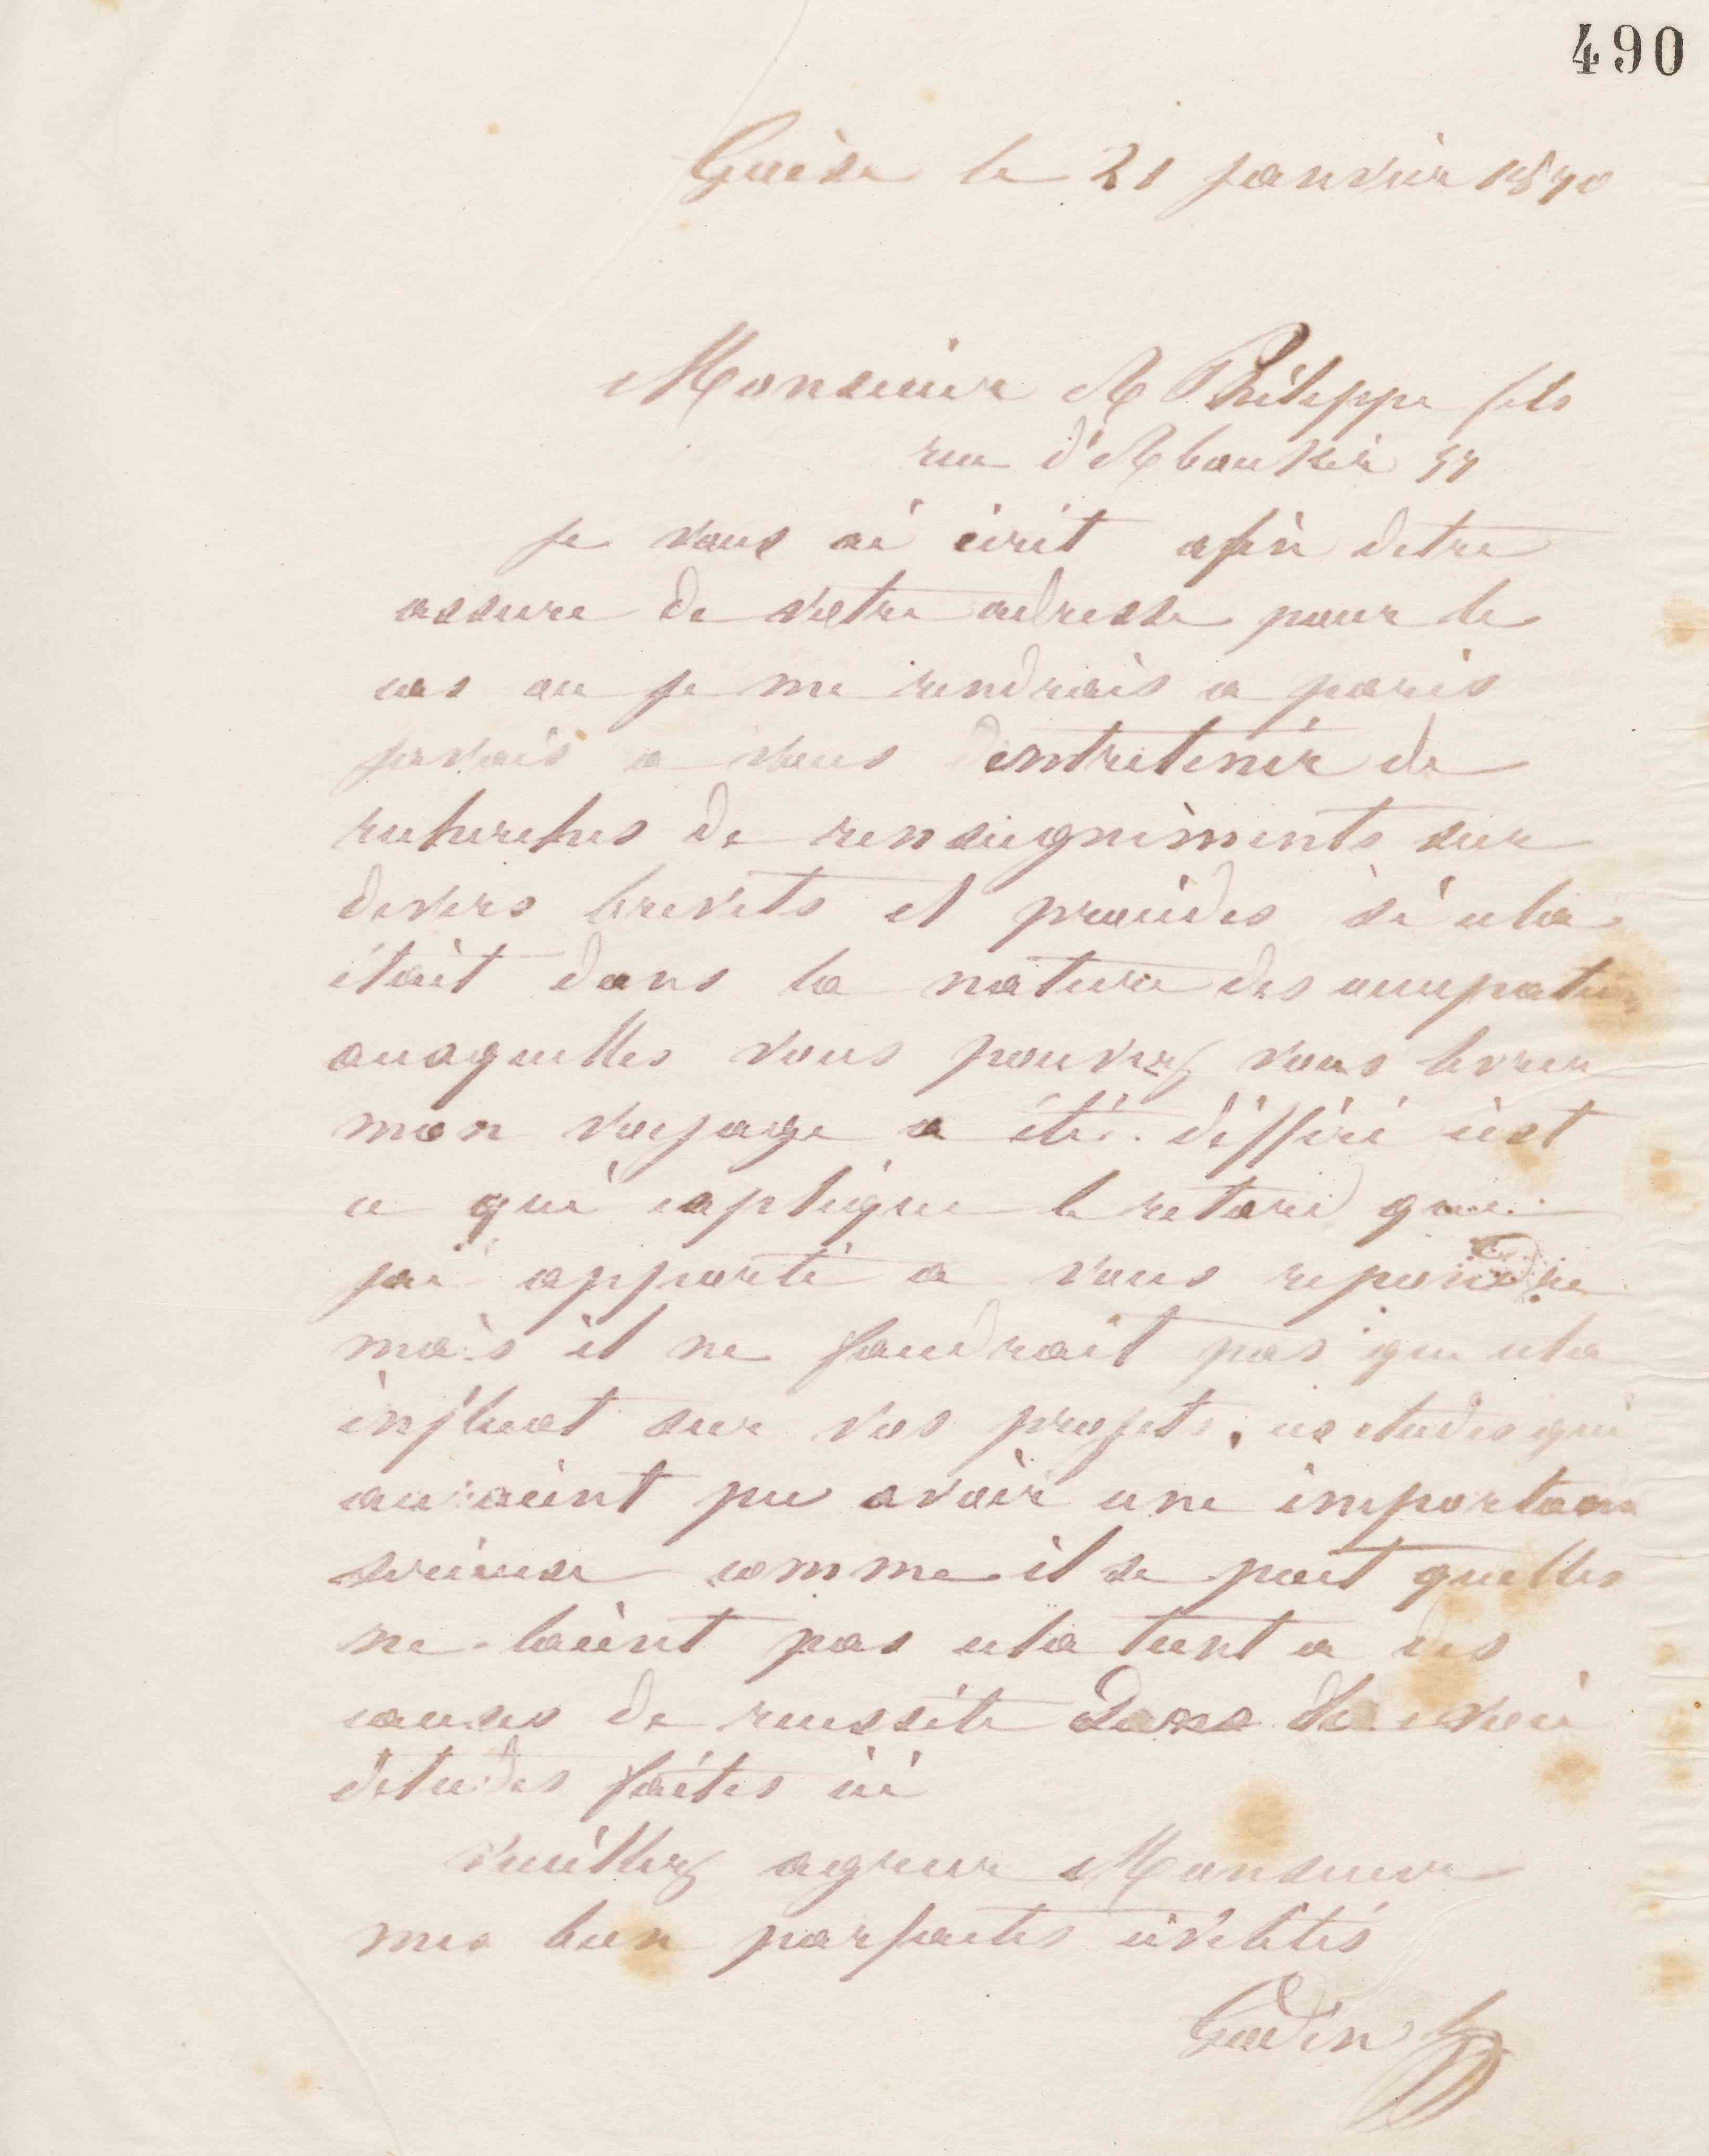 490
Guise le 21 janvier 1870
Monsieur A Philippe fils
rue d'Aboukir
je vous ai écrit afin detre
assure de votre adresse pour le
cas ou je me rendrais a paris
javais a vous entretenir de
recherches de renseignements sur
divers brevets et procédés si cela
était dans la nature des occupations
auxquelles vous pouvez vous livrer
mon voyage a été différé cest
ce qui explique le retard que
jai apporté a vous repondre
mais il ne faudrait pas que cela
influat sur vos projets, ces etudes qui
auraient pu avoir une importance
serieuse comme il se peut quelles
ne laient pas cela tient a des
causes de reussite
detudes faites ici
veuillez agreer Monsieur
mes bien parfaites civilités
Godin